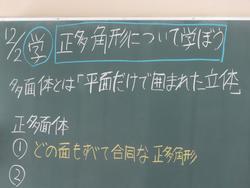 12/2 学 正多角形について学ぼう
多面体とは「平面だけで囲まれた立体」
正多面体
① どの面もすべて合同な正多角形
②